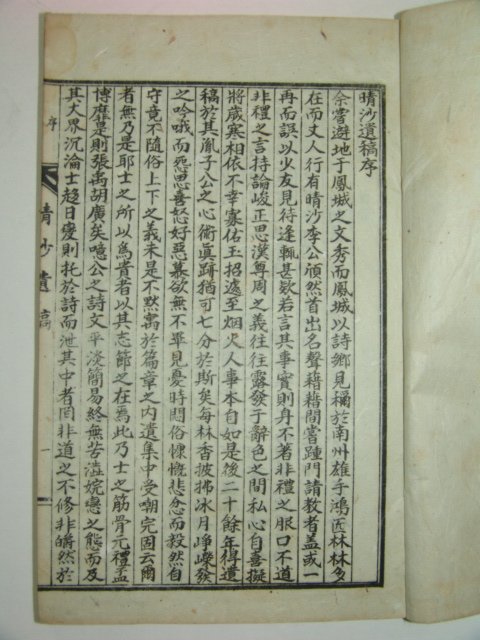 晴沙遺稿序
余嘗遊地于鳳城之文秀而鳳城以詩鄉見稱於南州雄手鴻匠林林多
在而丈人行有晴沙李公頎然首出名聲藉藉間嘗踵門請教者盖或一
再而誤以少友見待逢輒甚歡若言其事實則身不著非禮之服口不道
非禮之言持論峻正思漢尊周之義往往露發于辭色之間私心自喜擬
將歲寒相依不幸寡佑玉招遽至烟火人事本自如是後二十餘年得遺
稿於其胤子公之心術眞蹟猶可七分於斯矣每林香披拂氷月崢嶸發
之吟哦而忠思喜怒好惡慕欲無不畢見憂時悶俗慷慨悲忿而毅然自
守竟不隨俗上下之義未是不默寓於篇章之內遺集中受嘲完固云爾
者無乃是耶士之所以爲貴者以其志節之在焉此乃士之筋骨元禮盖
博靡是則張禹胡廣矣噫公之詩文平淡簡易終無苦澁婉戀之態而及
其大界沉淪士趍日變則托於詩而泄其中者罔非道之不修非皭然於
序
晴沙遺稿
一